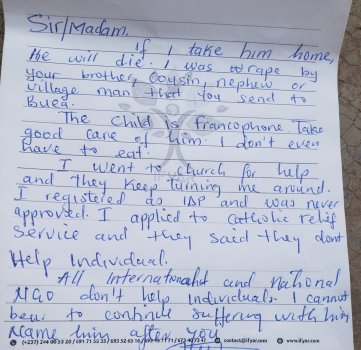 Sir/Madam,
If I take him home,
He will die. I was wrape by
your brother, cousin, nephew or
village man that you send to
Buea.
The child is francophone Take
good care of him. I don't even
have to eat.
I went to church for help
and they keep turning me around.
I registered as IDP and was never
approved. I applied to catholic relief
service and they said they dont
Help Individual.
All International and national
NGO don't help individuals. I cannot
bear to continue suffering with him
Name him after you
(+237) 244 00 53 20 / 691 71 55 33 / 693 52 65 16 contact@ifyar.com https://ifyar.com